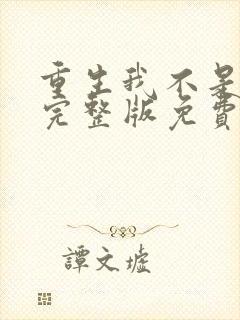 重生我不是
完整版免費
譚文墟